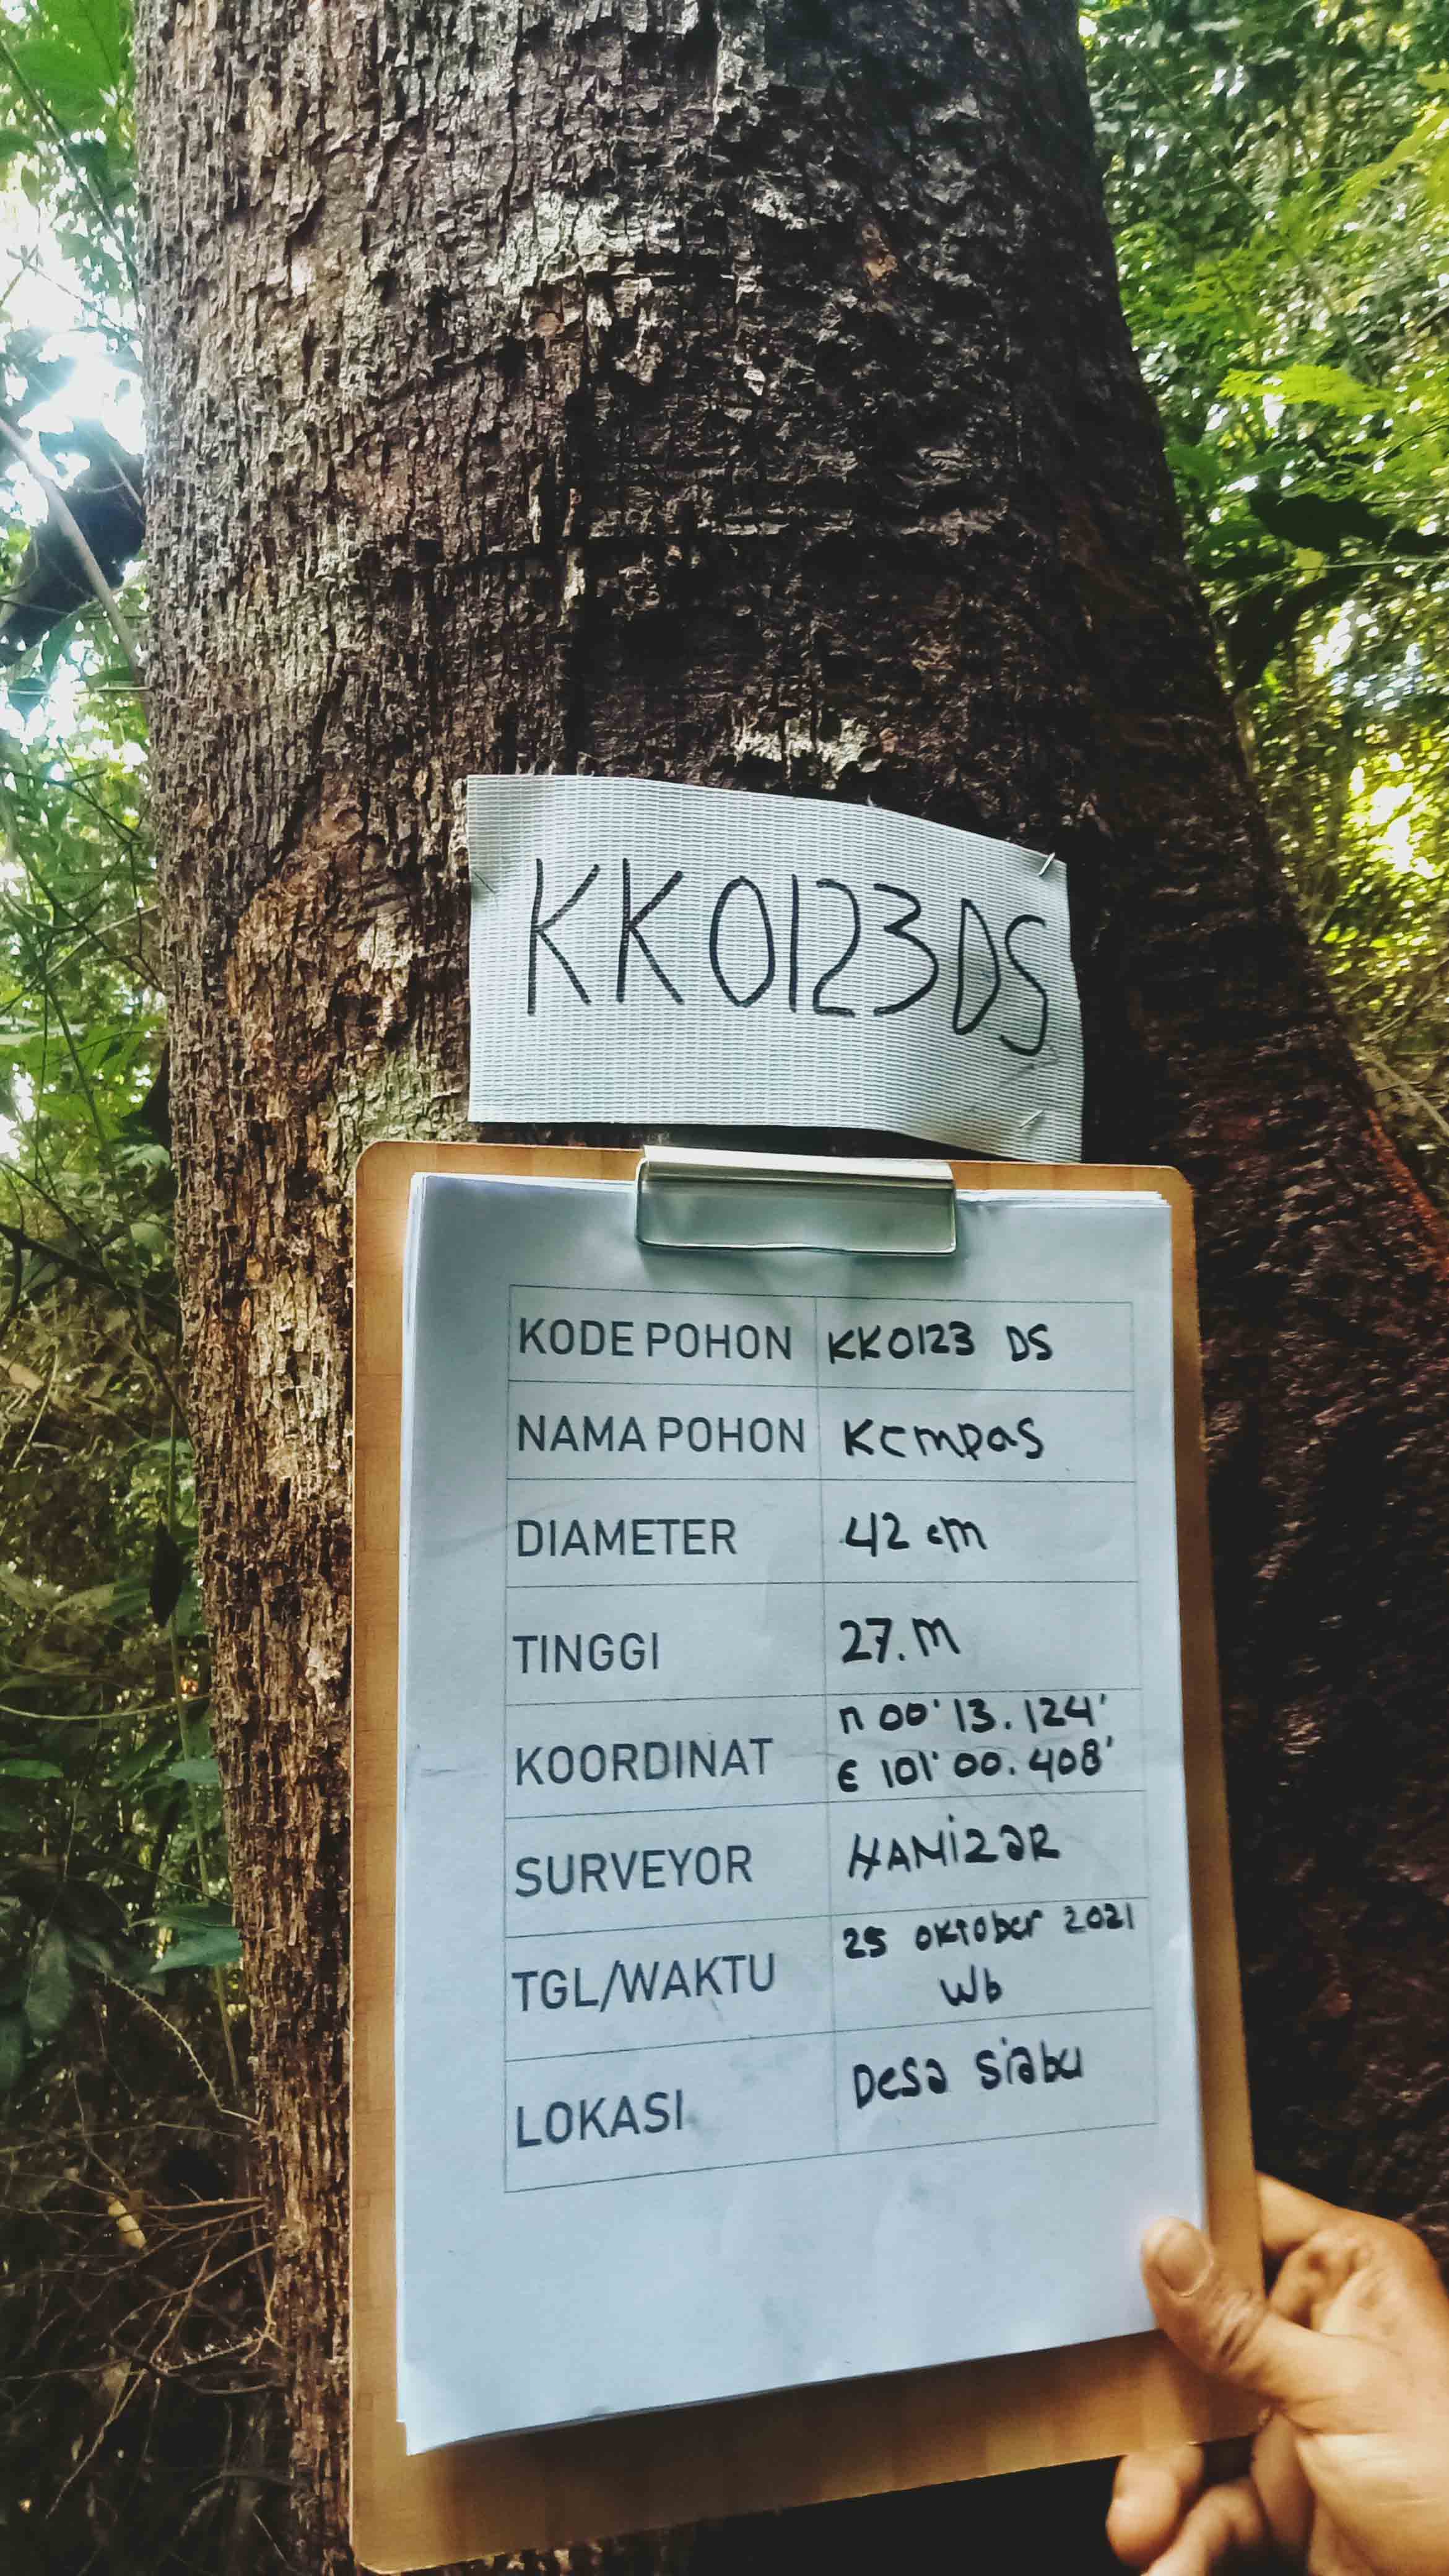 KK0123 DS
KODE POHON KK0123 DS
NAMA POHON Kempas
DIAMETER 42 cm
TINGGI 27.m
KOORDINAT n 00' 13.124'
E 101' 00.408'
SURVEYOR HAMizaR
TGL/WAKTU 25 oktober 2021
Wb
LOKASI Desa siabu